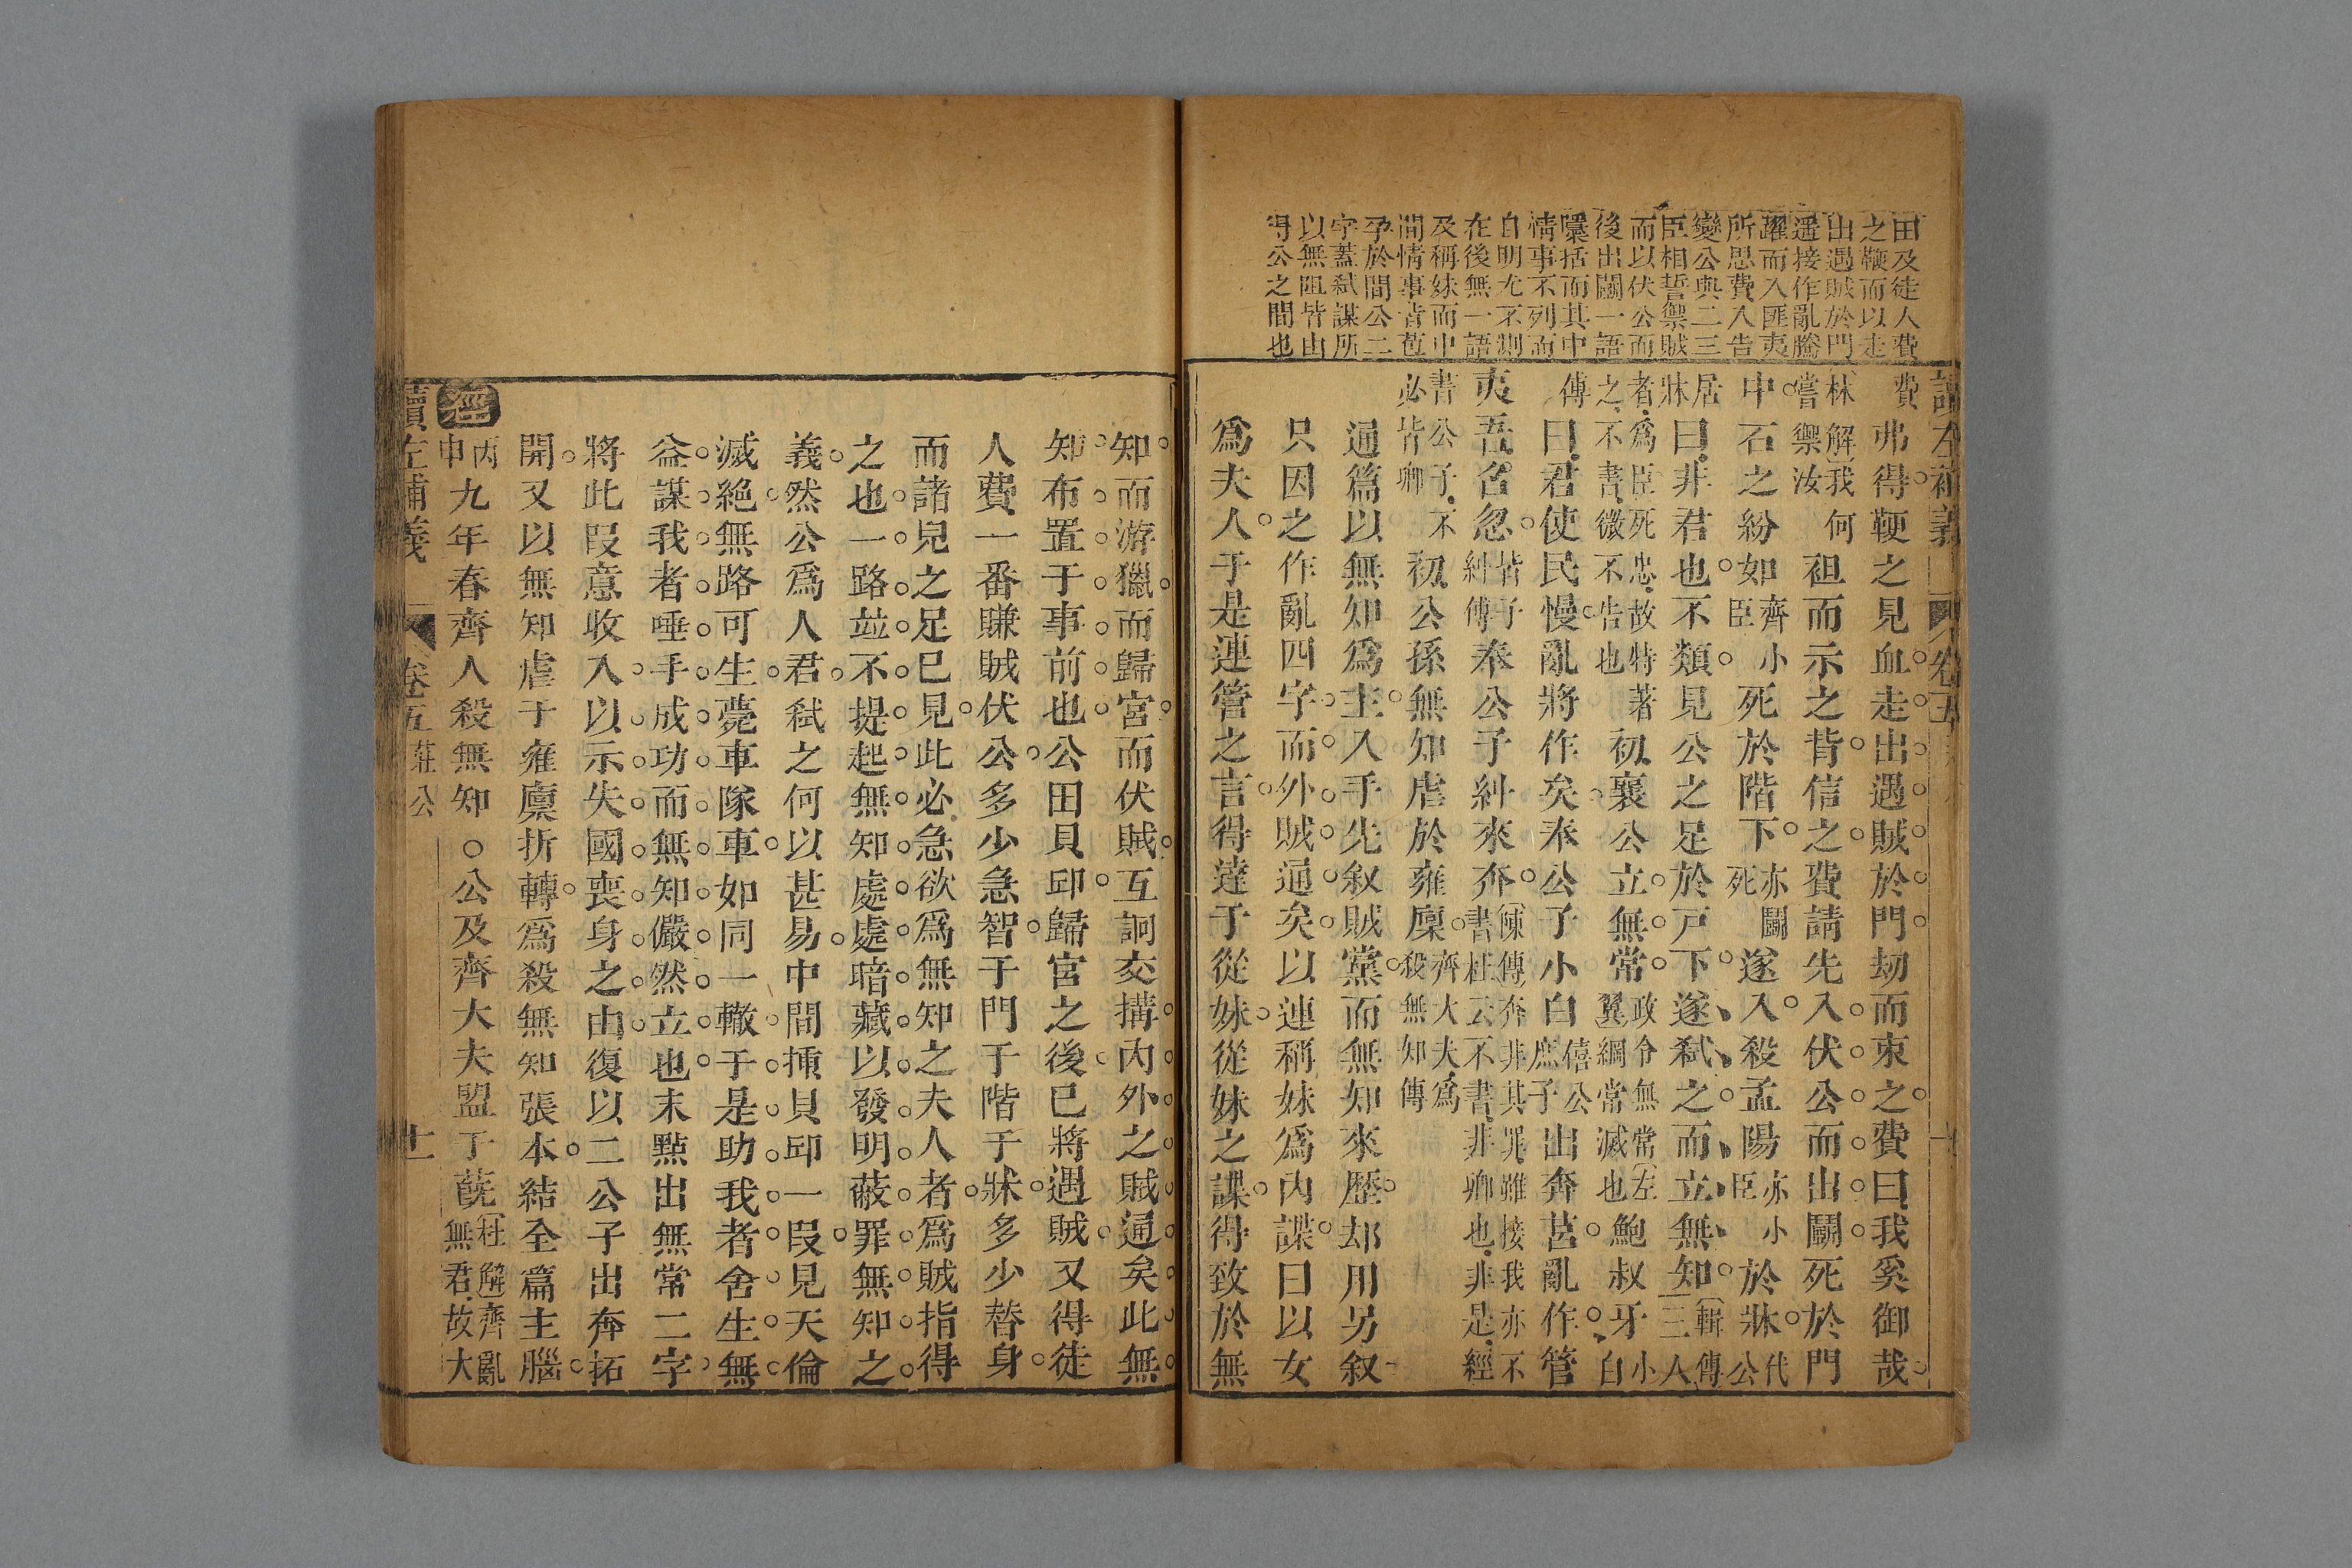 田及徒人費
之鞭而以走
出遇賊於門
遥接作亂騰
躍而入匪夷
所思費入告
變公與二三
臣相誓禦賊
而以伏公而
後出鬭一語
檃括而其中
情事不列而
自明尤不測
在後無一語
及稱妹而中
間情事皆苞
孕於間公二
字蓋弑謀所
以無阻皆由
得公之間也
讀左補義 卷五
費弗得鞭之見血走出遇賊於門刼而束之費曰我奚御哉
林解我何嘗禦汝袒而示之背信之費請先入伏公而出鬭死於門
中石之紛如齊小臣死於階下亦鬭死遂入殺孟陽亦小臣於牀代公
居牀曰非君也不類見公之足於戸下遂弑之而立無知輯傳三人
者爲臣死忠故特著之不書微不告也初襄公立無常政令無常左翼綱常滅也鮑叔牙小白
傅曰君使民慢亂將作矣奉公子小白僖公庶子出奔莒亂作管
夷吾召忽皆子糾傅奉公子糾來奔陳傳奔非其罪雖接我亦不書杜云不書非卿也非是經
書公子不必皆卿初公孫無知虐於雍廩齊大夫爲殺無知傳
通篇以無知爲主入手先叙賊黨而無知來歷却用另叙
只因之作亂四字而外賊通矣以連稱妹爲内諜曰以女
爲夫人于是連管之言得達于從妹從妹之諜得致於無
知而游獵而歸宮而伏賊互訶交搆内外之賊通矣此無
知布置于事前也公田貝邱歸宮之後已將遇賊又得徒
人費一番賺賊伏公多少急智于門于階于牀多少替身
而諸兒之足已見此必急欲爲無知之夫人者爲賊指得
之也一路並不提起無知處處暗藏以發明蔽罪無知之
義然公爲人君弑之何以甚易中間挿貝邱一段見天倫
滅絶無路可生薨車隊車如同一轍于是助我者舍生無
益謀我者唾手成功而無知儼然立也末點出無常二字
將此段意收入以示失國喪身之由復以二公子出奔拓
開又以無知虐于雍廩折轉爲殺無知張本結全篇主腦
經丙申九年春齊人殺無知○公及齊大夫盟于蔇杜解齊亂無君故大
讀左補義 卷五 莊公 十一